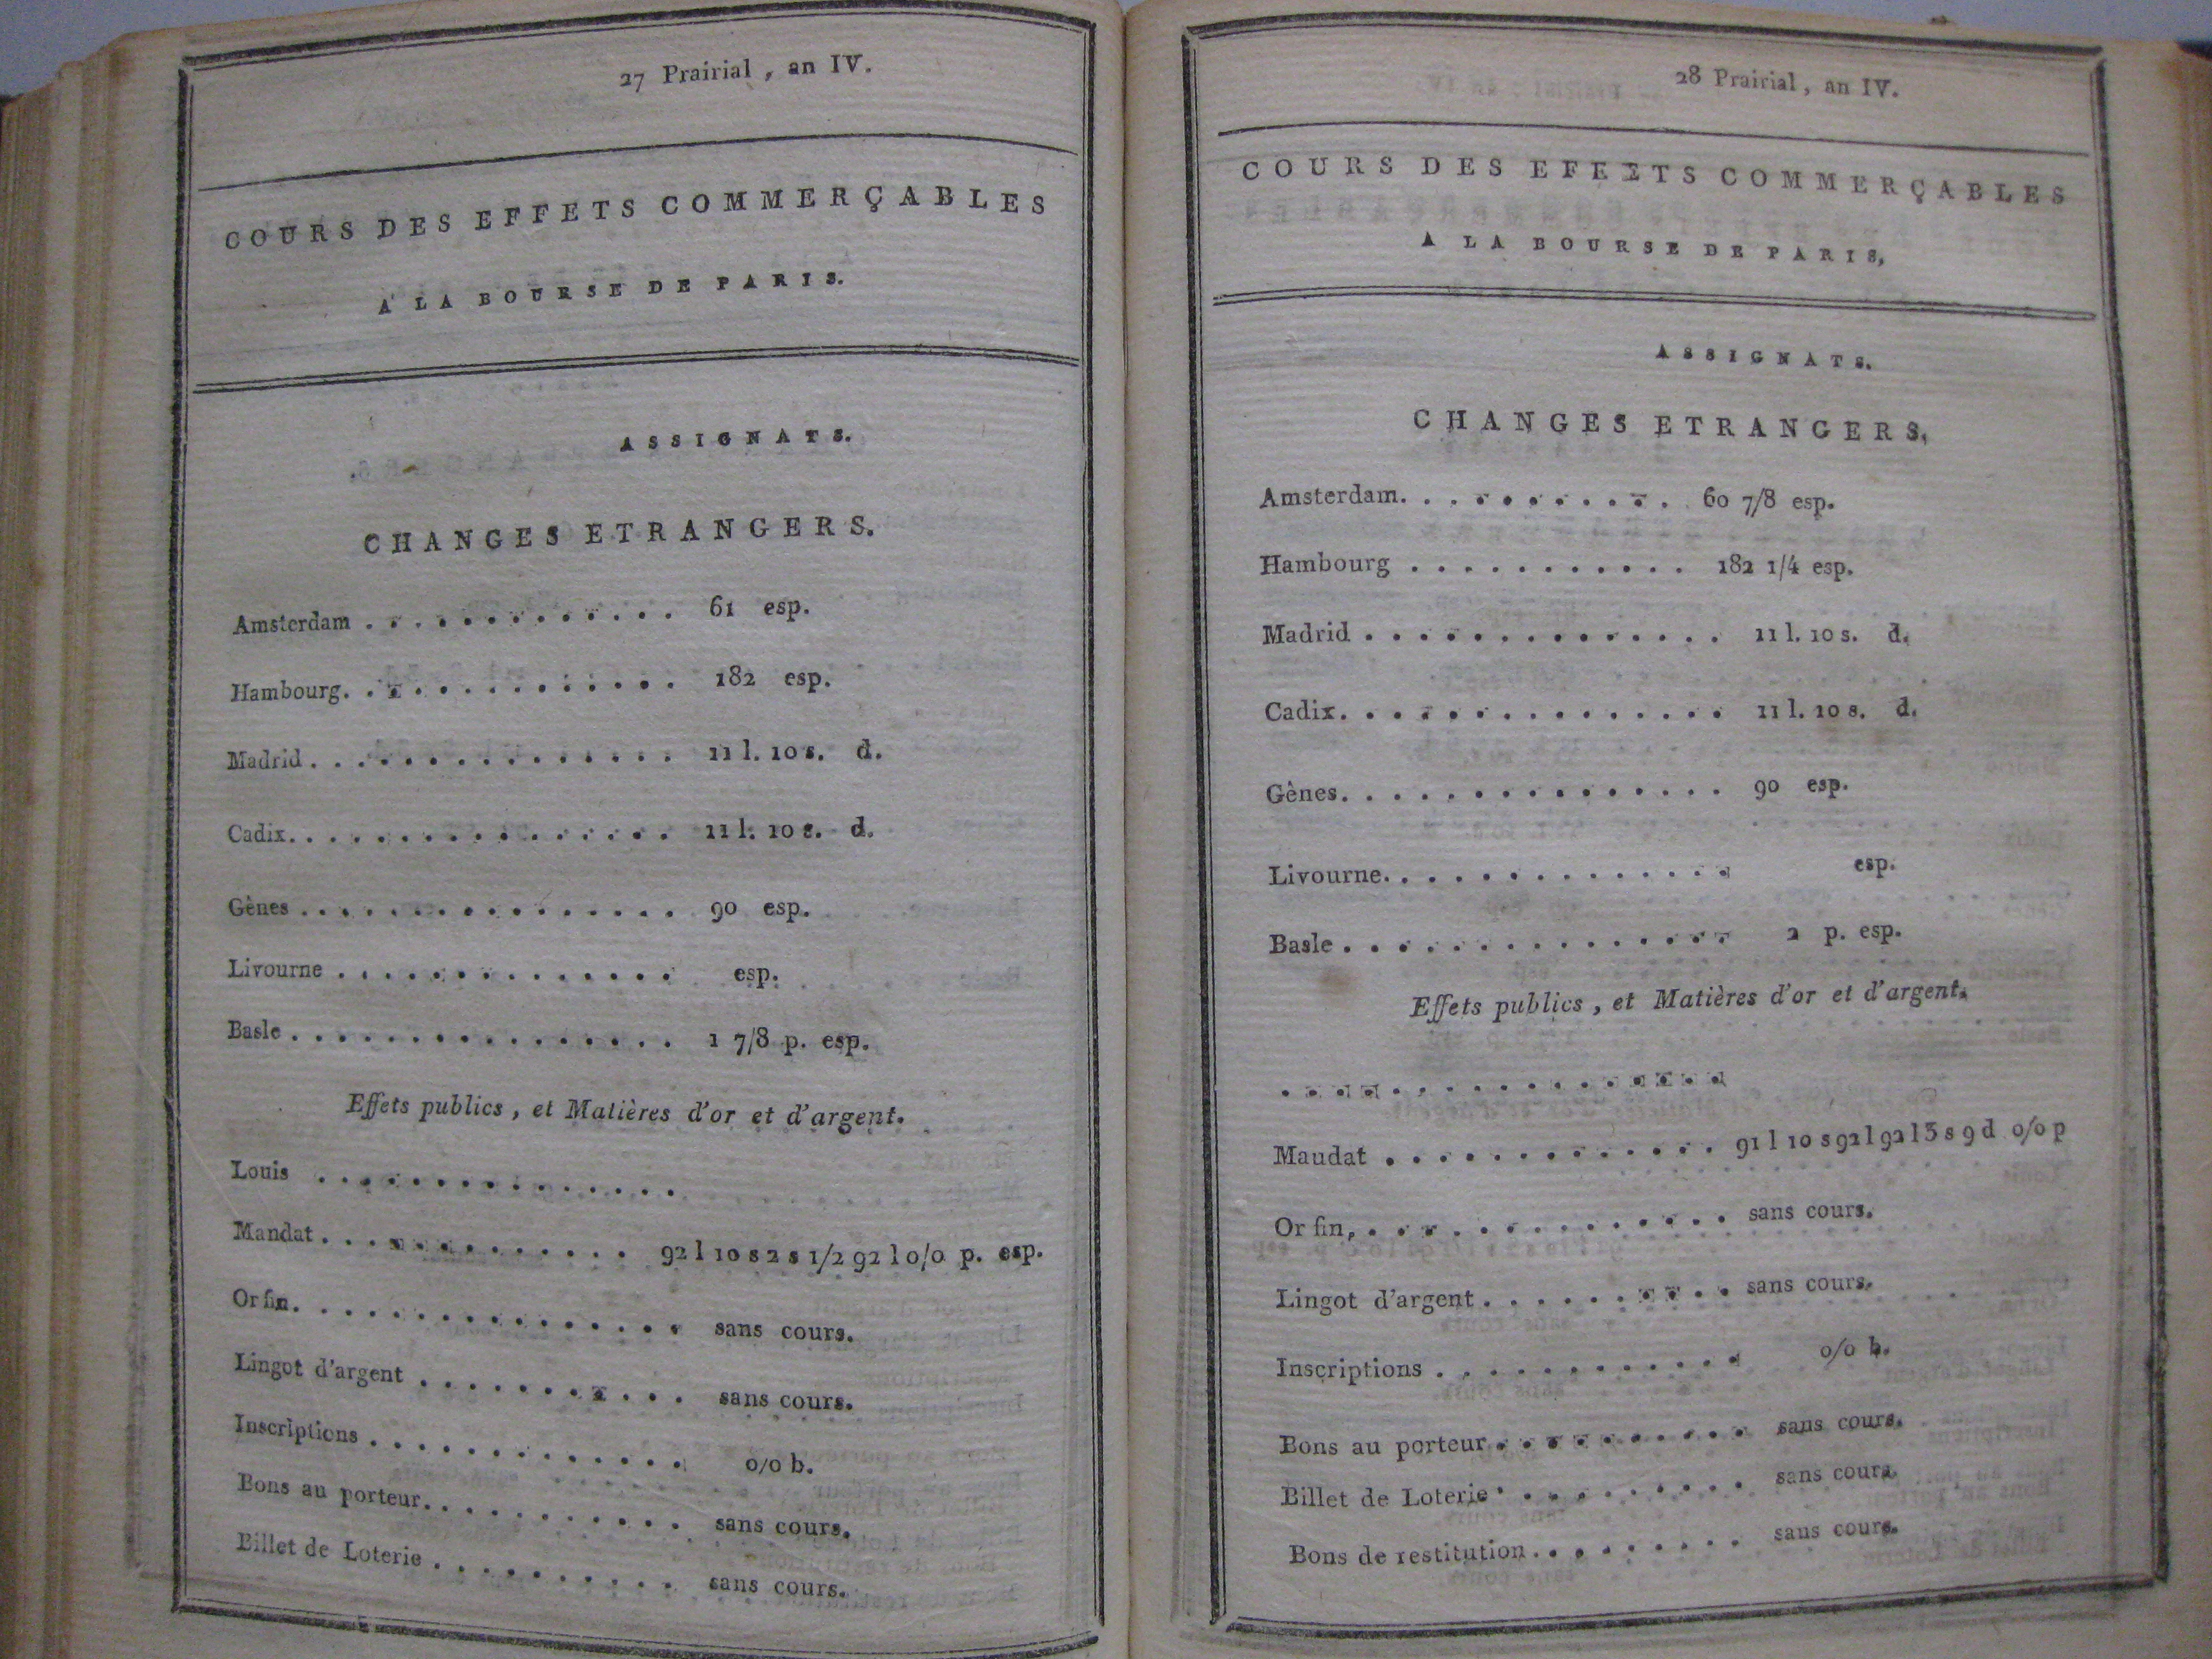 27 Prairial , an IV.
COURS DES EFFETS COMMERÇABLES
A LA BOURSE DE PARIS.
ASSIGNATS.
CHANGES ETRANGERS.
Amsterdam . . . . . . . . . . . . . 61 esp.
Hambourg. . . . . . . . . . . . . 182 esp.
Madrid . . . . . . . . . . . . . . . 11 l. 10 s. d.
Cadix. . . . . . . . . . . . . . . . 11 l. 10 s. d.
Gênes . . . . . . . . . . . . . . . . 90 esp.
Livourne . . . . . . . . . . . . . . esp.
Basle . . . . . . . . . . . . . . . . 1 7/8 p. esp.
Effets publics , et Matières d'or et d'argent.
Louis . . . . . . . . . . . . . . .
Mandat . . . . . . . . . . . . . 92 l 10 s 2 s 1/2 92 l 0/0 p. esp.
Or fin. . . . . . . . . . . . . . . . sans cours.
Lingot d'argent . . . . . . . . . . . sans cours.
Inscriptions . . . . . . . . . . . . . 0/0 b.
Bons au porteur. . . . . . . . . . . sans cours.
Billet de Loterie . . . . . . . . . . sans cours.
28 Prairial , an IV.
COURS DES EFEETS COMMERÇABLES
A LA BOURSE DE PARIS,
ASSIGNATS.
CHANGES ETRANGERS,
Amsterdam. . . . . . . . . . . 60 7/8 esp.
Hambourg . . . . . . . . . . . 182 1/4 esp.
Madrid . . . . . . . . . . . . . . 11 l. 10 s. d.
Cadix. . . . . . . . . . . . . . . 11 l. 10 s. d.
Gênes. . . . . . . . . . . . . . . 90 esp.
Livourne. . . . . . . . . . . . . . esp.
Basle . . . . . . . . . . . . . . . 2 p. esp.
Effets publics , et Matières d'or et d'argent.
. . . . . . . . . . . . . . . . .
Maudat . . . . . . . . . . . . . 91 l 10 s 92 l 92 l 3 s 9 d 0/0 p
Or fin, . . . . . . . . . . . . . . sans cours.
Lingot d'argent . . . . . . . . . . sans cours.
Inscriptions . . . . . . . . . . . . 0/0 b.
Bons au porteur . . . . . . . . . . sans cours.
Billet de Loterie . . . . . . . . . . sans cours.
Bons de restitution . . . . . . . . . sans cours.